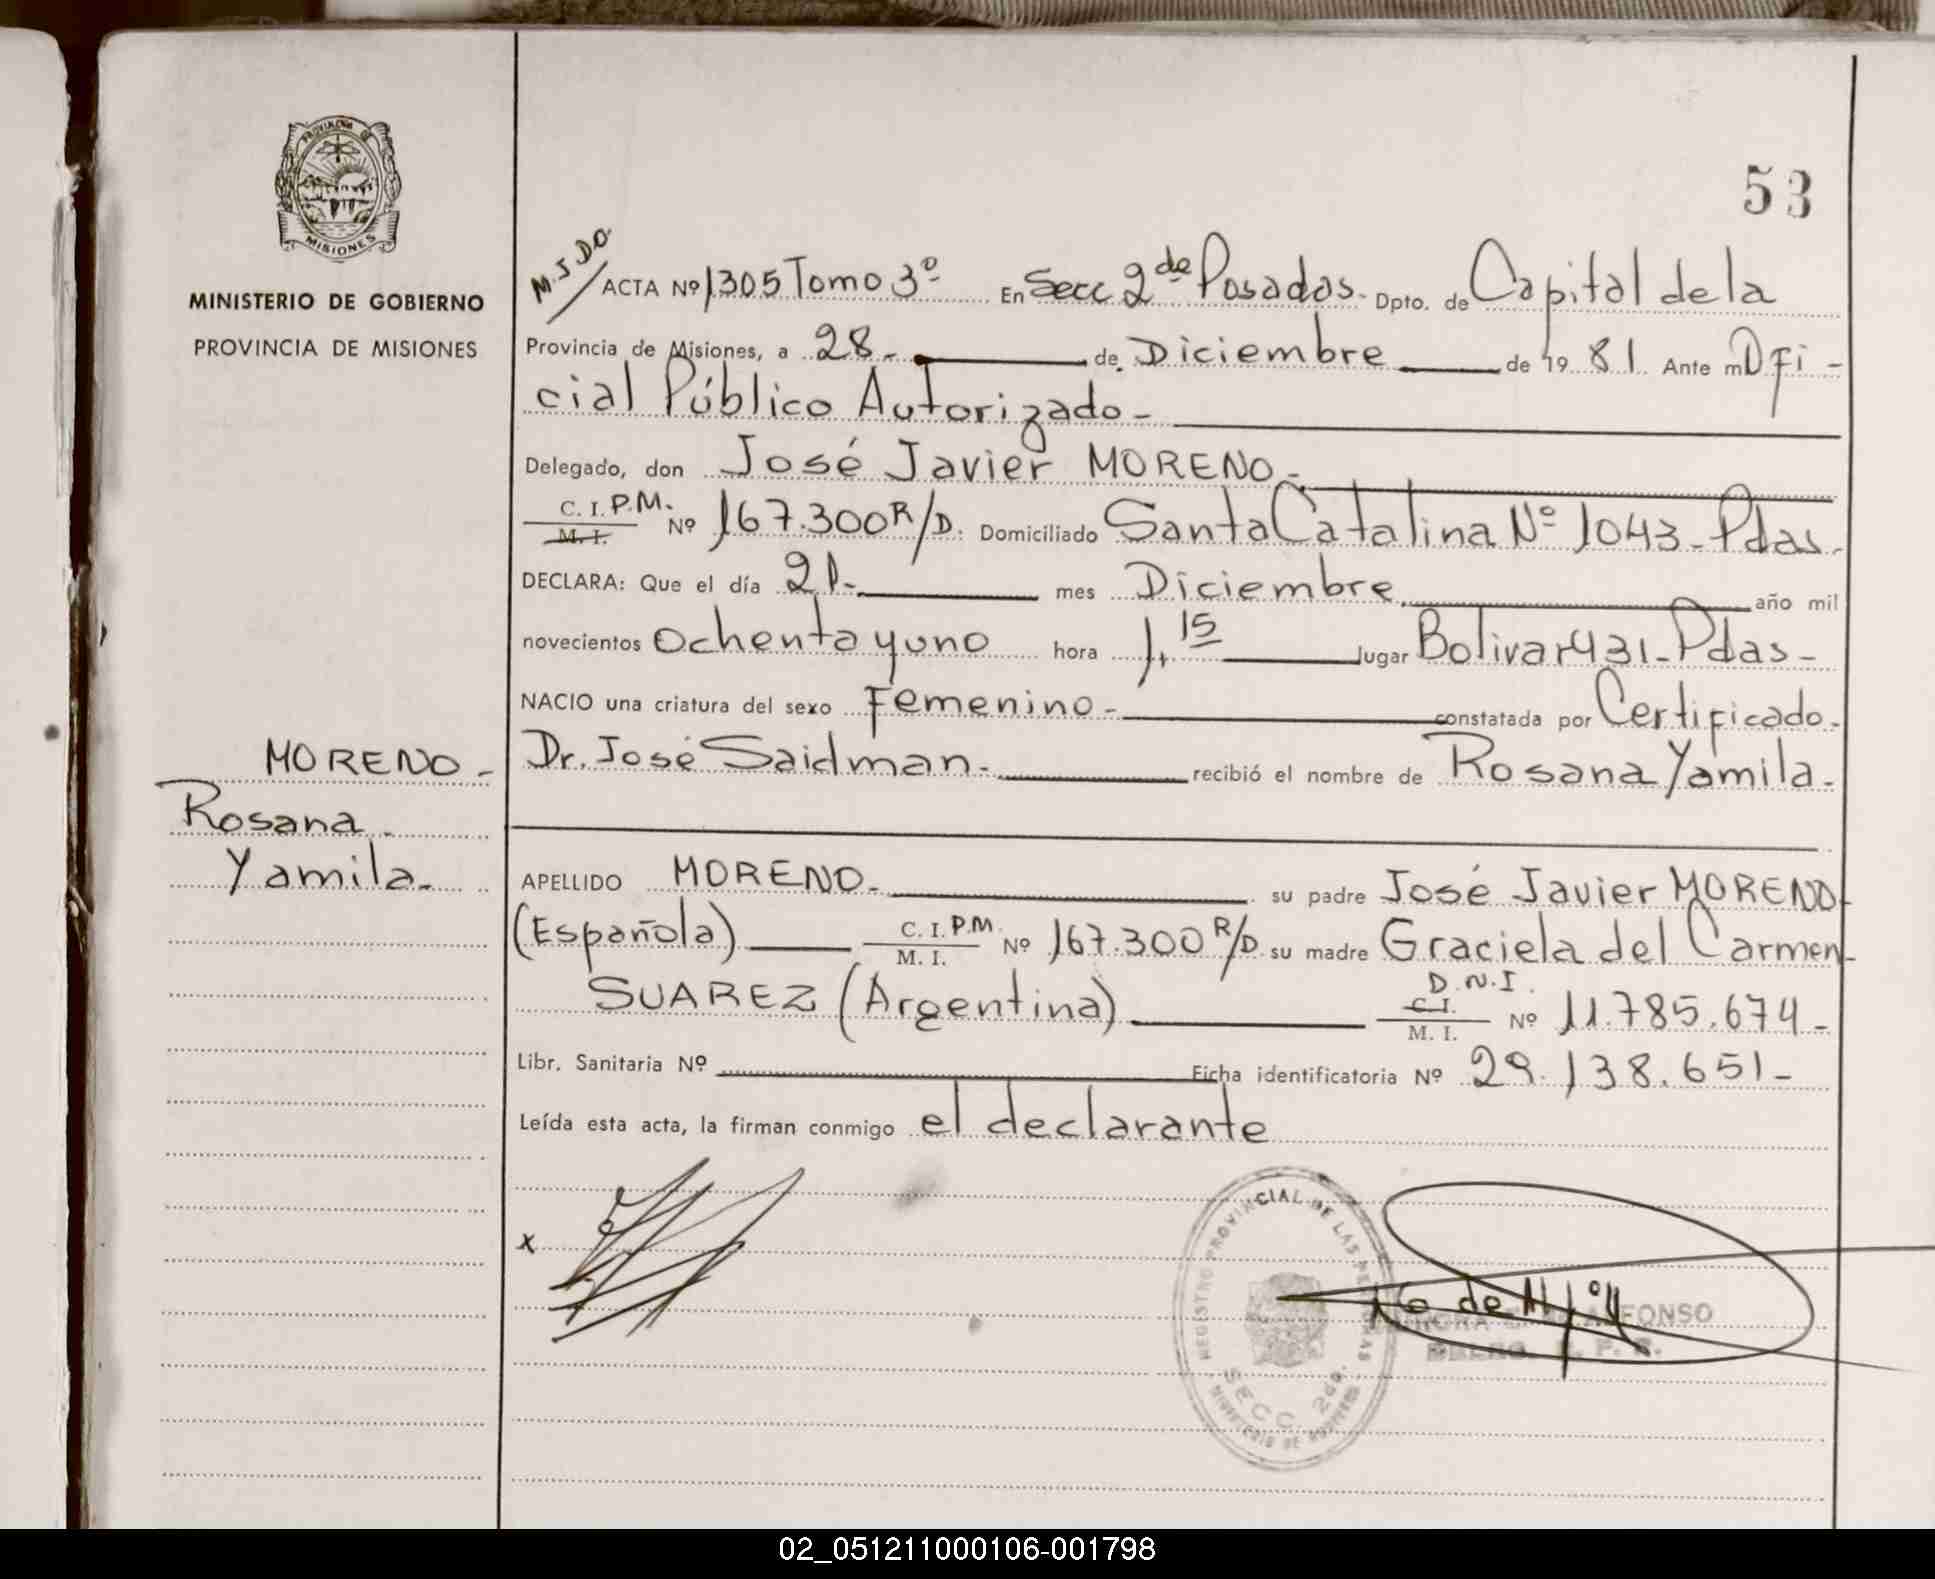 53
PROVINCIA DE
MISIONES
MINISTERIO DE GOBIERNO
PROVINCIA DE MISIONES
M.S DO.
ACTA Nº 1305 Tomo 3º En Secc 2da Posadas. Dpto. de Capital de la
Provincia de Misiones, a 28.- de Diciembre de 1981. Ante mí Ofi-
cial Público Autorizado-
Delegado, don José Javier MORENO-
C. I. P.M.
M. I. Nº 167.300 R/D. Domiciliado Santa Catalina Nº 1043- Pdas.
DECLARA: Que el día 21.- mes Diciembre año mil
novecientos Ochenta y uno hora 1,15 lugar Bolivar 431- Pdas-
NACIO una criatura del sexo Femenino- constatada por Certificado-
Dr. José Saidman- recibió el nombre de Rosana Yamila.
MORENO-
Rosana
Yamila-
APELLIDO MORENO- su padre José Javier MORENO
(Española) C. I. P.M. M. I. Nº 167.300 R/D. su madre Graciela del Carmen
SUAREZ (Argentina) D.N.I. C. I. M. I. Nº 11.785.674-
Libr. Sanitaria Nº Ficha identificatoria Nº 29.138.651-
Leída esta acta, la firman conmigo el declarante
x
REGISTRO PROVINCIAL DE LAS PERSONAS
SECC. 2da.
MINISTERIO DE GOBIERNO
ALFONSO
02_051211000106-001798